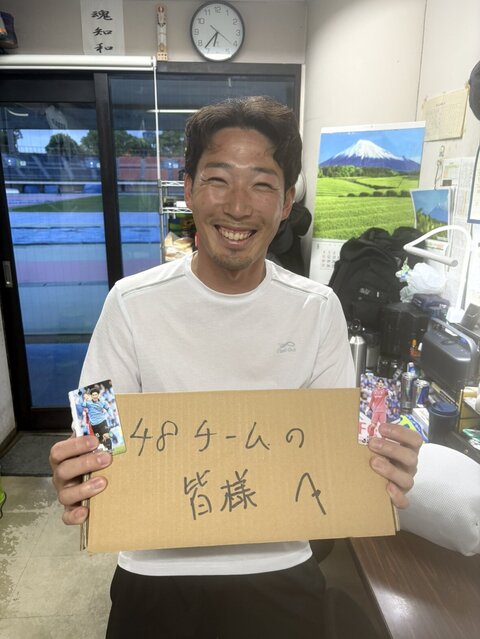 魂知和
48チームの
皆様へ